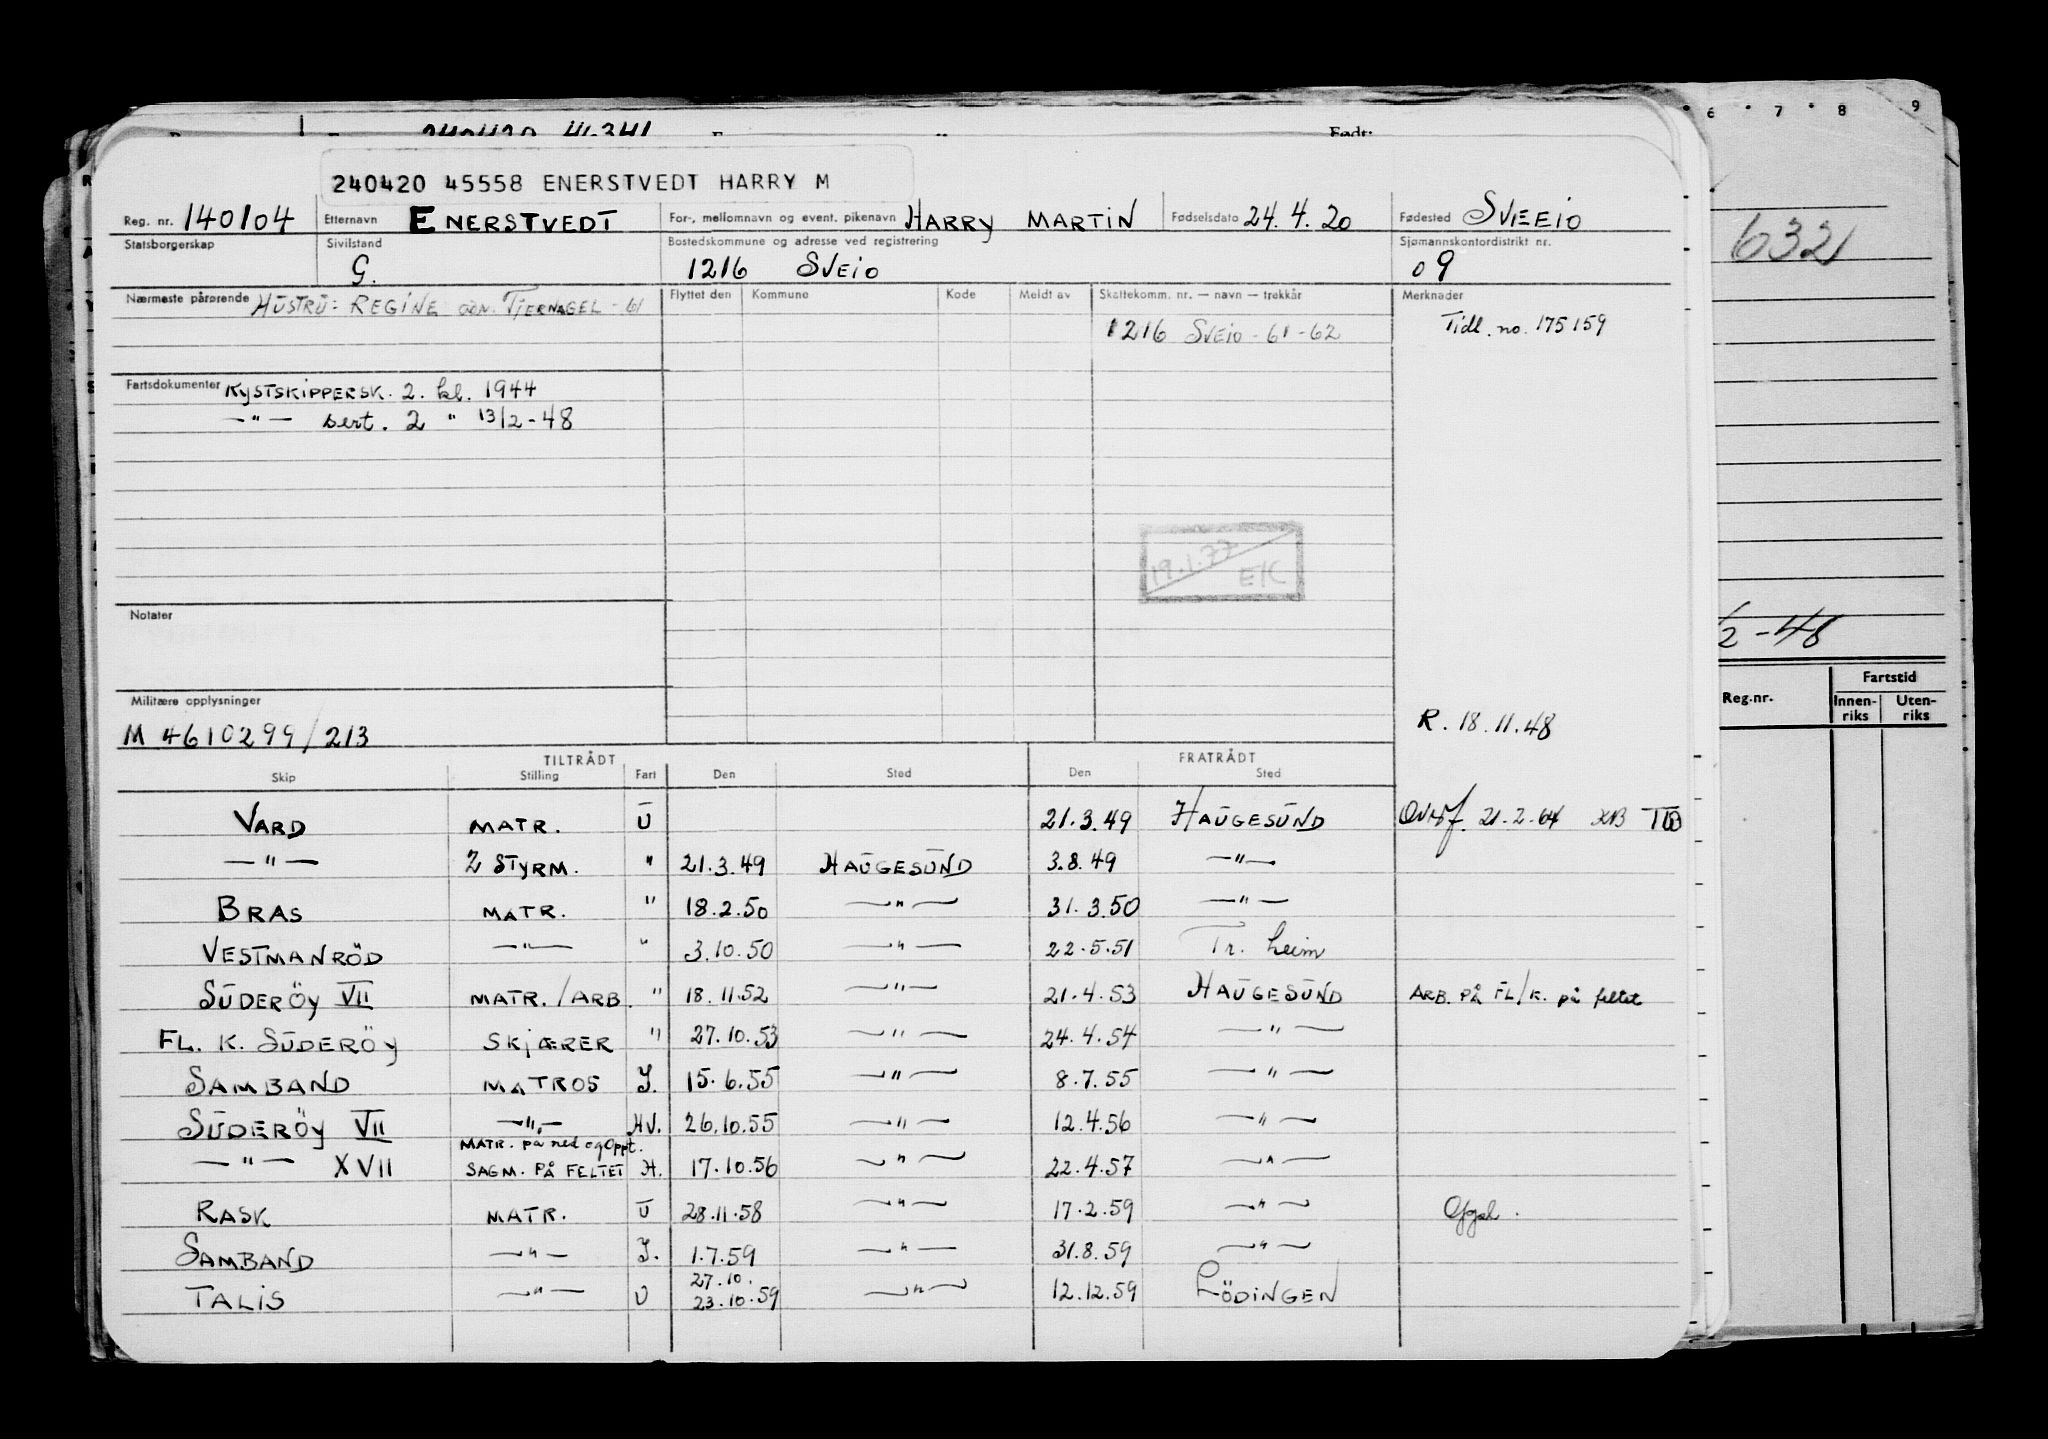 6 7 8 9
240420 46341
Født:
240420 45558 ENERSTVEDT HARRY M
Reg. nr. 140104 Etternavn ENERSTVEDT For-, mellomnavn og event. pikenavn HARRY MARTIN Fødselsdato 24.4.20 Fødested SVEEIO
Statsborgerskap Sivilstand Bostedskommune og adresse ved registrering Sjømannskontordistrikt nr.
G. 1216 SVEIO 09
632
Nærmeste pårørende HUSTRU: REGINE TJERNAGEL - 61 Flyttet den Kommune Kode Meldt av Skattekomm. nr. — navn — trekkår Merknader
1216 SVEIO - 61 - 62 Tidl. no. 175159
Fartsdokumenter KYSTSKIPPERSK. 2. kl. 1944
—"— sert. 2 " 13/2-48
19.1.77 EK
Notater
/2 -48
Militære opplysninger
M 4610299/213
R. 18.11.48
Reg.nr. Fartstid
Innen-riks Uten-riks
TILTRÅDT FRATRÅDT
Skip Stilling Fart Den Sted Den Sted
VARD MATR. U 21.3.49 HAUGESUND Overf. 21.2.64
—"— 2 STYRM. " 21.3.49 HAUGESUND 3.8.49 —"—
BRAS MATR. " 18.2.50 —"— 31.3.50 —"—
VESTMANRÖD —"— " 3.10.50 —"— 22.5.51 Tr. heim
SÜDERÖY VII MATR./ARB. " 18.11.52 —"— 21.4.53 HAUGESUND ARB. PÅ FL/K. på feltet
FL. K. SÜDERÖY SKJÆRER " 27.10.53 —"— 24.4.54 —"—
SAMBAND MATROS I. 15.6.55 —"— 8.7.55 —"—
SÜDERÖY VII —"— HV. 26.10.55 —"— 12.4.56 —"—
MATR. på ned og oppt.
—"— XVII SAGM. PÅ FELTET H. 17.10.56 —"— 22.4.57 —"—
RASK MATR. U 28.11.58 —"— 17.2.59 —"—
SAMBAND —"— I. 1.7.59 —"— 31.8.59 —"—
27.10.
TALIS —"— U 23.10.59 —"— 12.12.59 LÖDINGEN